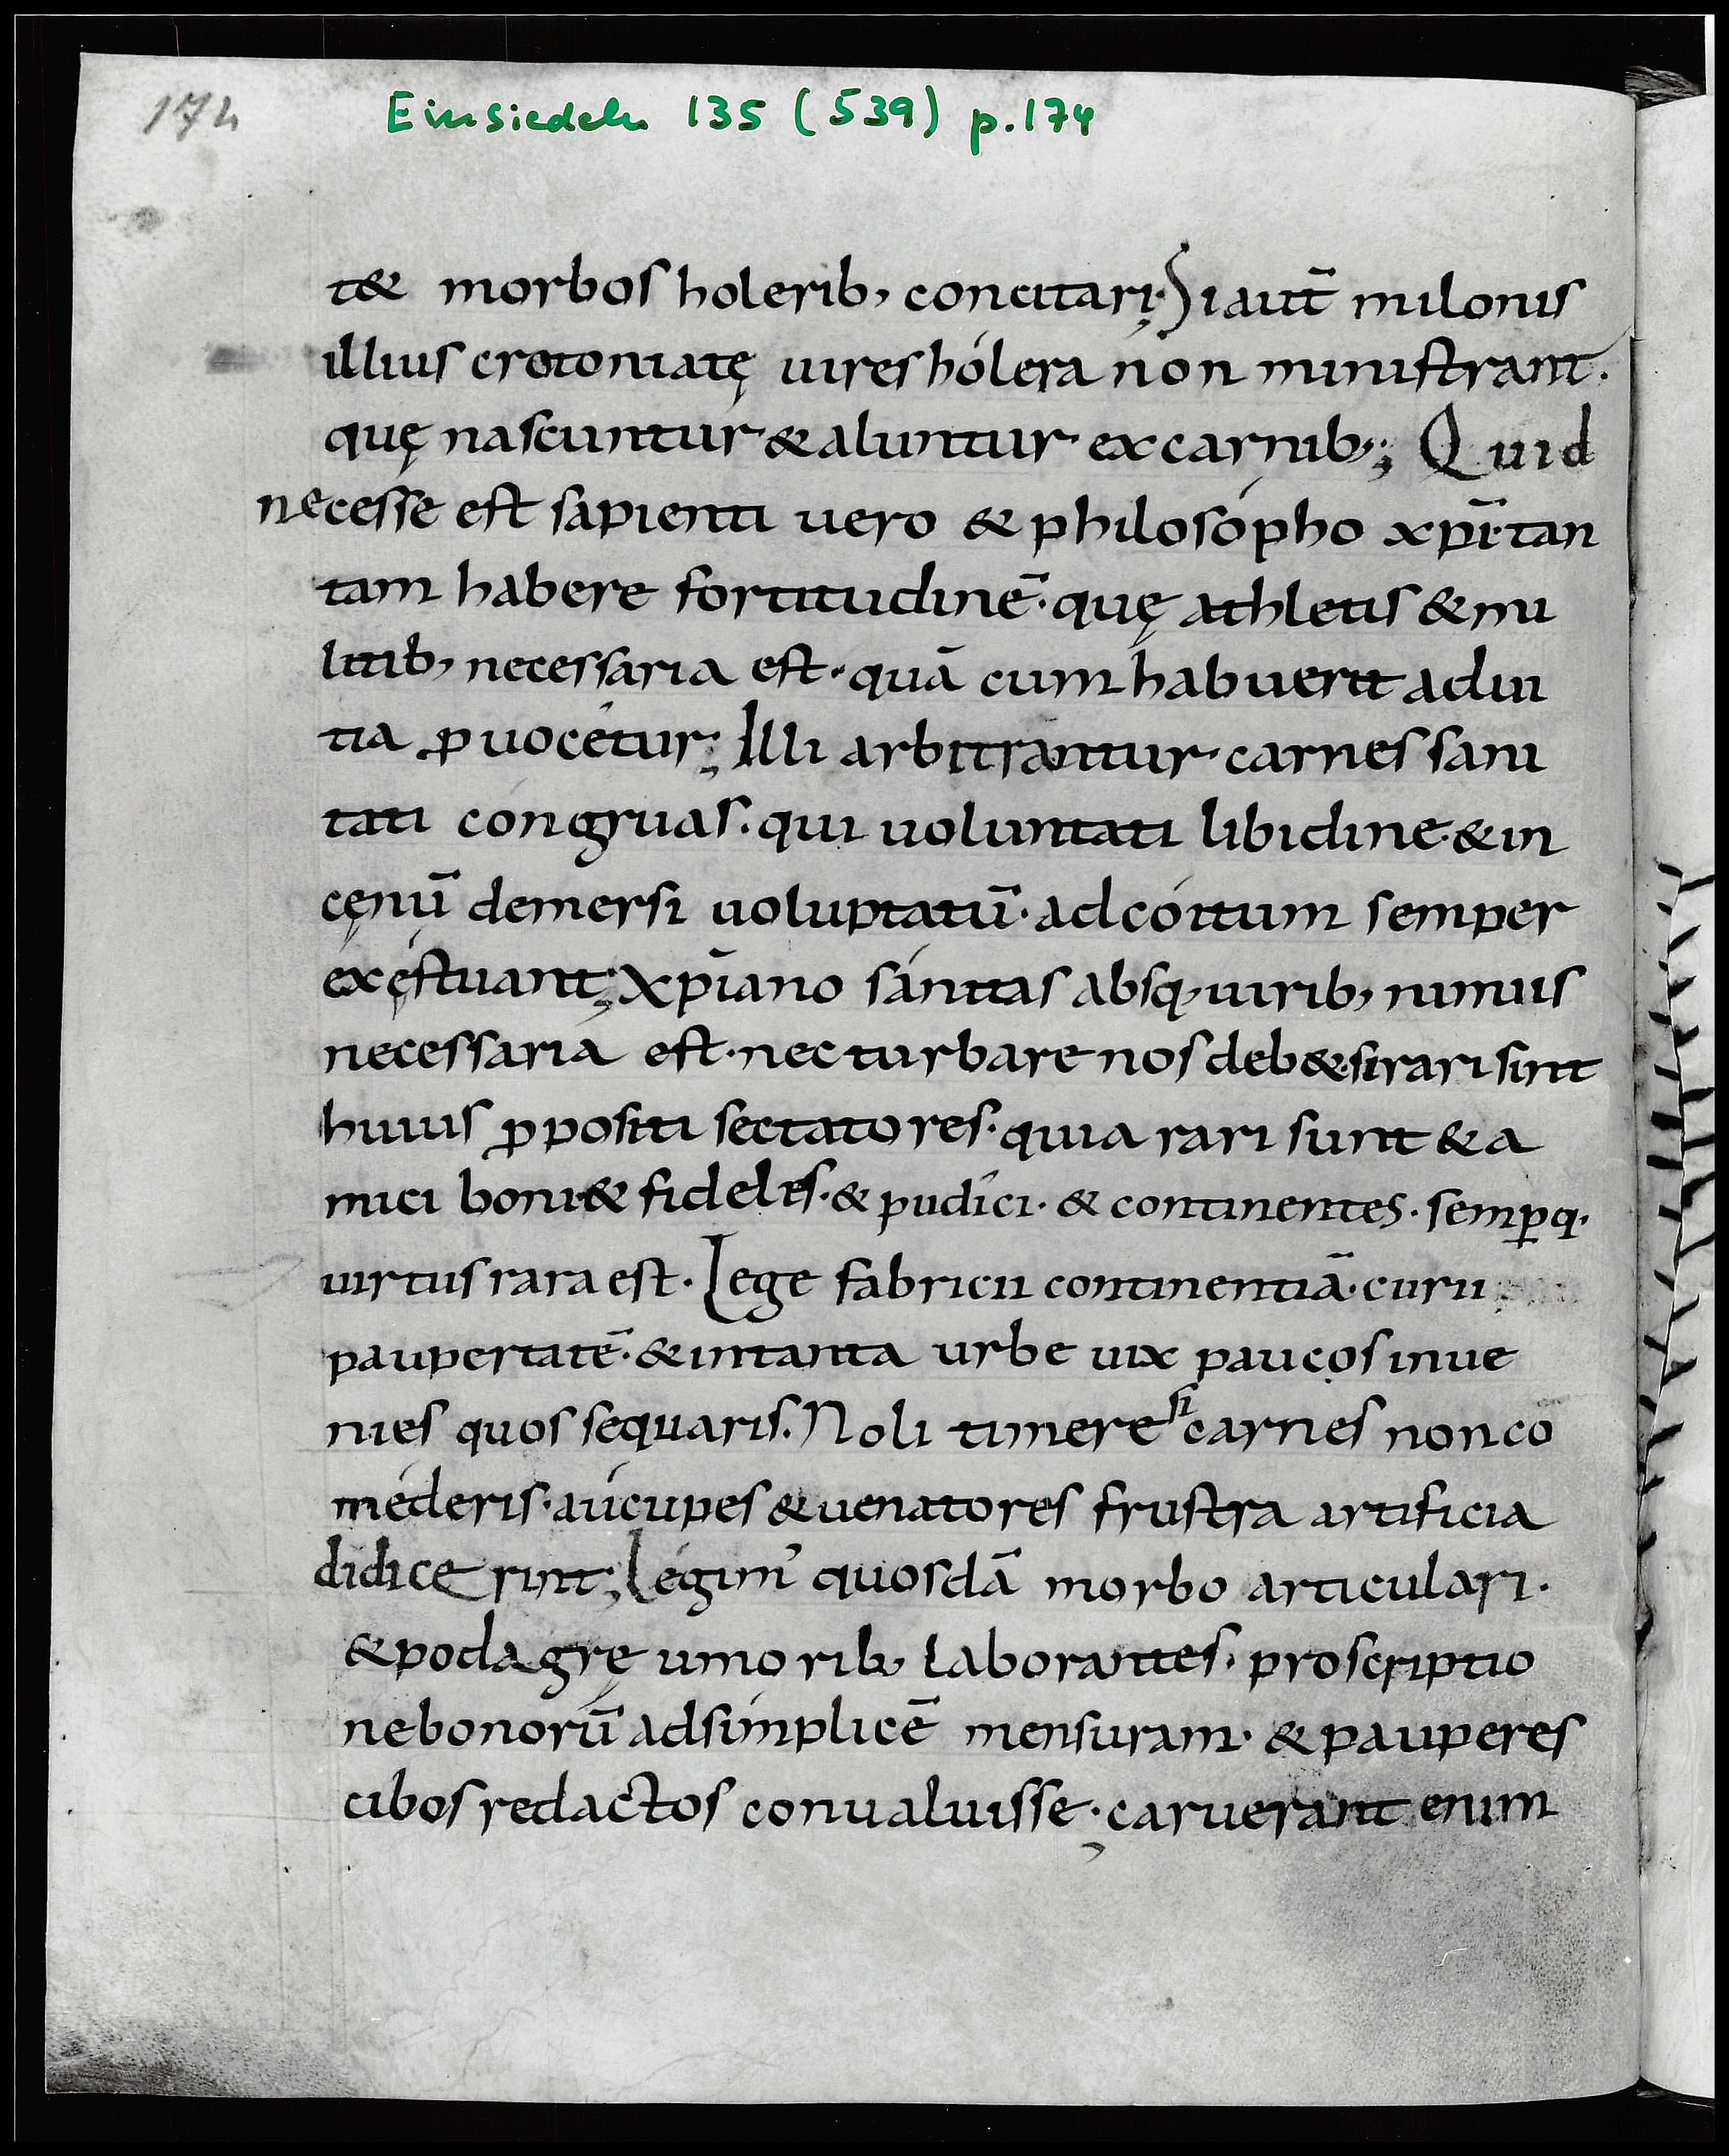 174 Einsiedeln 135 (539) p.174
t& morbos holerib, concitari; Si aut̄ milonis
illius crotoniatę uires hólera non ministrant.
quę nascuntur & aluntur ex carnib,; Quid
necesse est sapienti uero & philosópho xp̄i·tan
tam habere fortitudinē· quę athletis & mi
litib, necessaria est· quā cum habuerit ad ui
tia ꝓuocétur; Illi arbitrantur carnes sani
tati cóngruas· qui uoluntati libidine· & in
cęnū demersi uoluptatū· ad cóitum semper
exęstuant; Xp̄iano sánitas absq, uirib, nimiis
necessaria est· nec turbare nos deb&· si rari sint
huius ꝓpositi sectatores· quia rari sunt & a
mici boni· & fideles· & pudíci· & continentes· semꝑq·
uirtus rara est· Lege fabricii continentiā· curii
paupertatē· & in tanta urbe uix paucos inue
nies quos sequaris. Noli timere si carnes non co
méderis· aúcupes & uenatores frustra artificia
didicerint; Légim' quosdā morbo articulari·
& podagrę umorib, laborantes· proscriptio
ne bonorū ad símplicē mensuram· & pauperes
cibos redactos conualuisse; caruerant enim